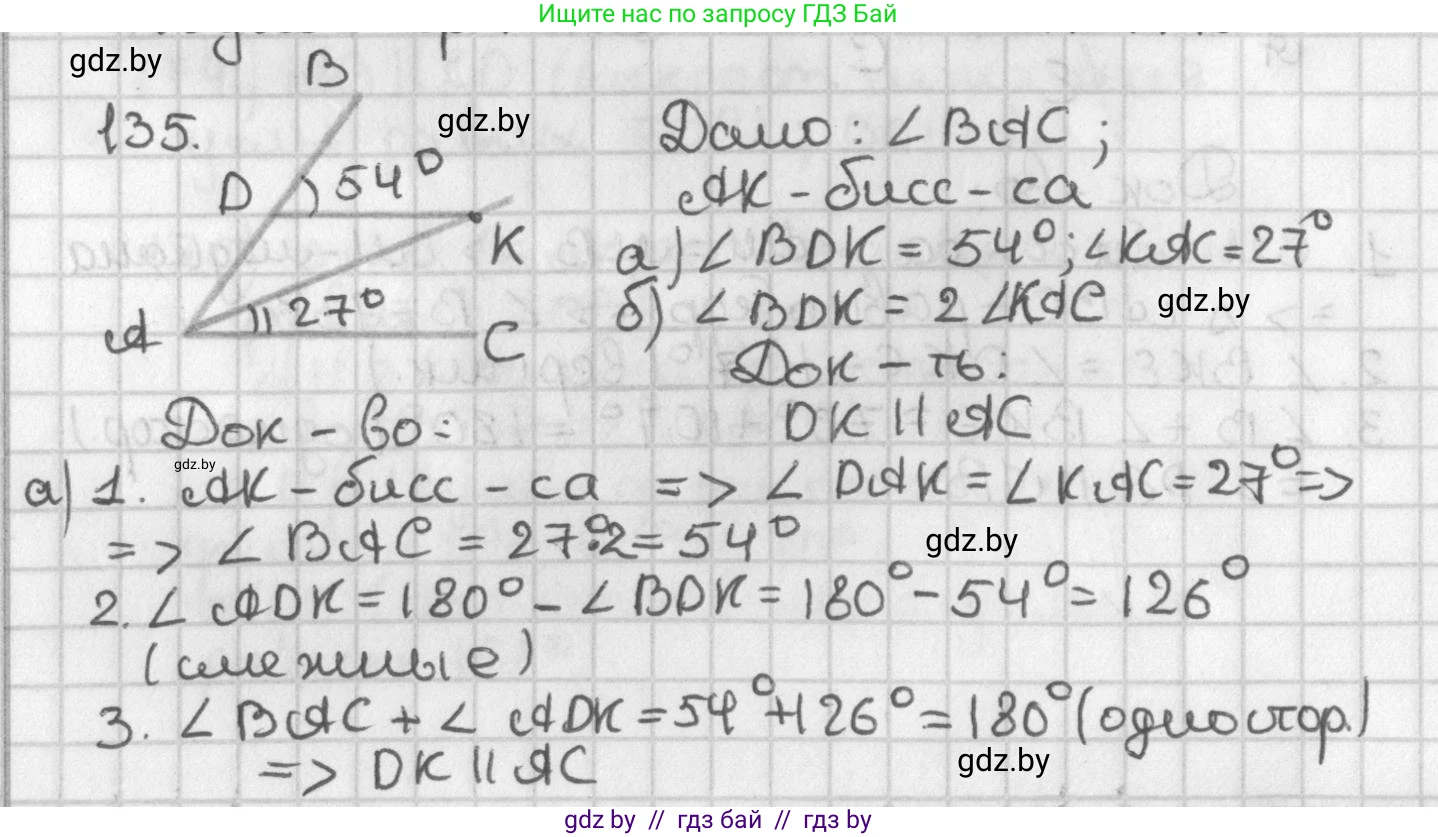 Ищите нас по запросу ГДЗ Бай
gdz.by
B
135.
gdz.by
D 54°
K
A 27° C
Дано: ∠BAC;
AK - бисс-са
а) ∠BDK = 54°; ∠KAC = 27°
б) ∠BDK = 2∠KAC
gdz.by
Док-ть:
DK || AC
Док-во:
gdz.by
а) 1. AK - бисс-са => ∠DAK = ∠KAC = 27° =>
=> ∠BAC = 27°·2 = 54°
gdz.by
2. ∠ADK = 180° - ∠BDK = 180° - 54° = 126°
(смежные)
3. ∠BAC + ∠ADK = 54° + 126° = 180° (одностор.)
=> DK || AC
gdz.by
gdz by // гдз бай // гдз by